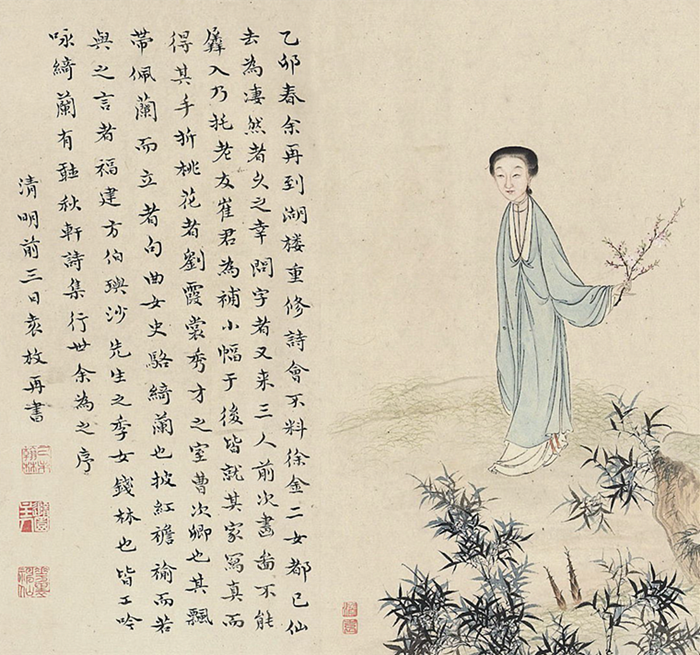 乙卯春余再到湖楼重修詩會不料徐金二女都已仙
去為凄然者久之幸問字者又来三人前次畫啚不能
羼入乃托老友崔君為補小幅于後皆就其家寫真而
得其手折桃花者劉霞裳秀才之室曹次卿也其飄
帶佩蘭而立者句曲女史駱綺蘭也披紅襜褕而若
與之言者福建方伯璵沙先生之季女錢林也皆工吟
咏綺蘭有聽秋軒詩集行世余為之序
清明前三日袁枚再書